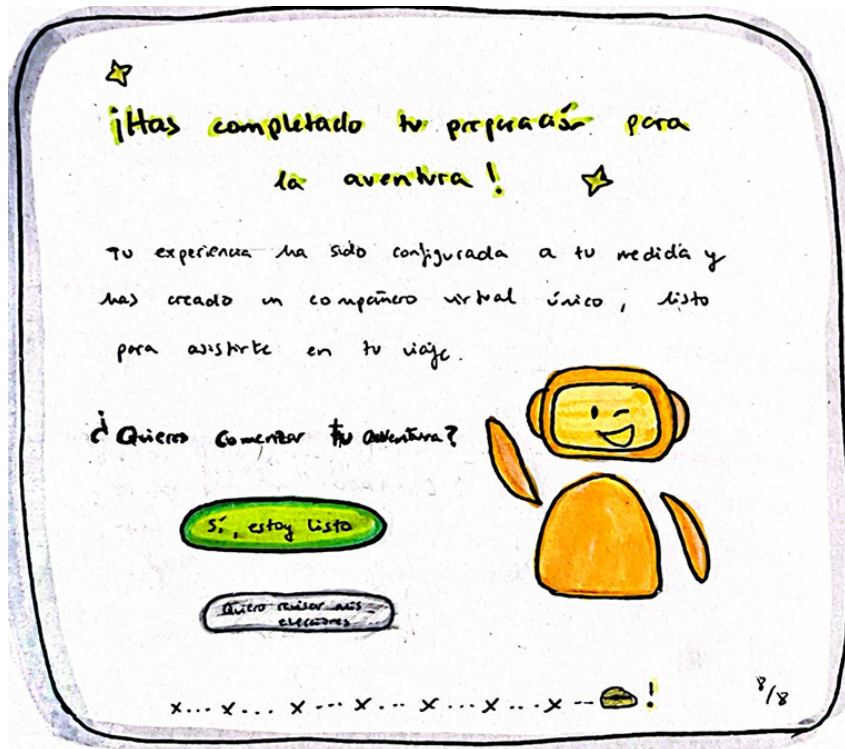 ¡Has completado tu preparación para
la aventura!
Tu experiencia ha sido configurada a tu medida y
has creado un compañero virtual único, listo
para asistirte en tu viaje.
¿Quieres comenzar tu aventura?
Sí, estoy listo
Quiero revisar mis
elecciones
x... x... x... x... x... x... x -- !
8/8